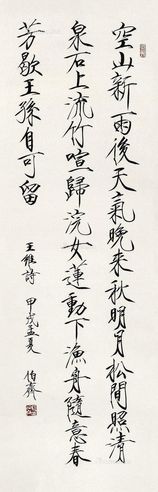 空山新雨後天氣晚來秋明月松間照清
泉石上流竹喧歸浣女蓮動下漁舟隨意春
芳歇王孫自可留
王維詩 甲戌孟夏 伯齊